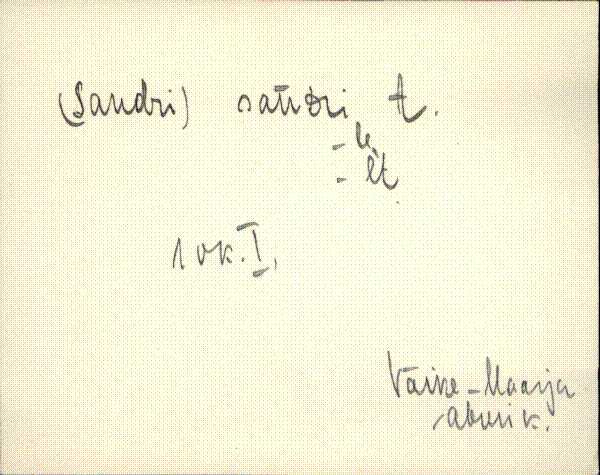 (Sandri) satuori, t.
- le,
- lt
1 vk. I.
Väike-Maarja
aburik.